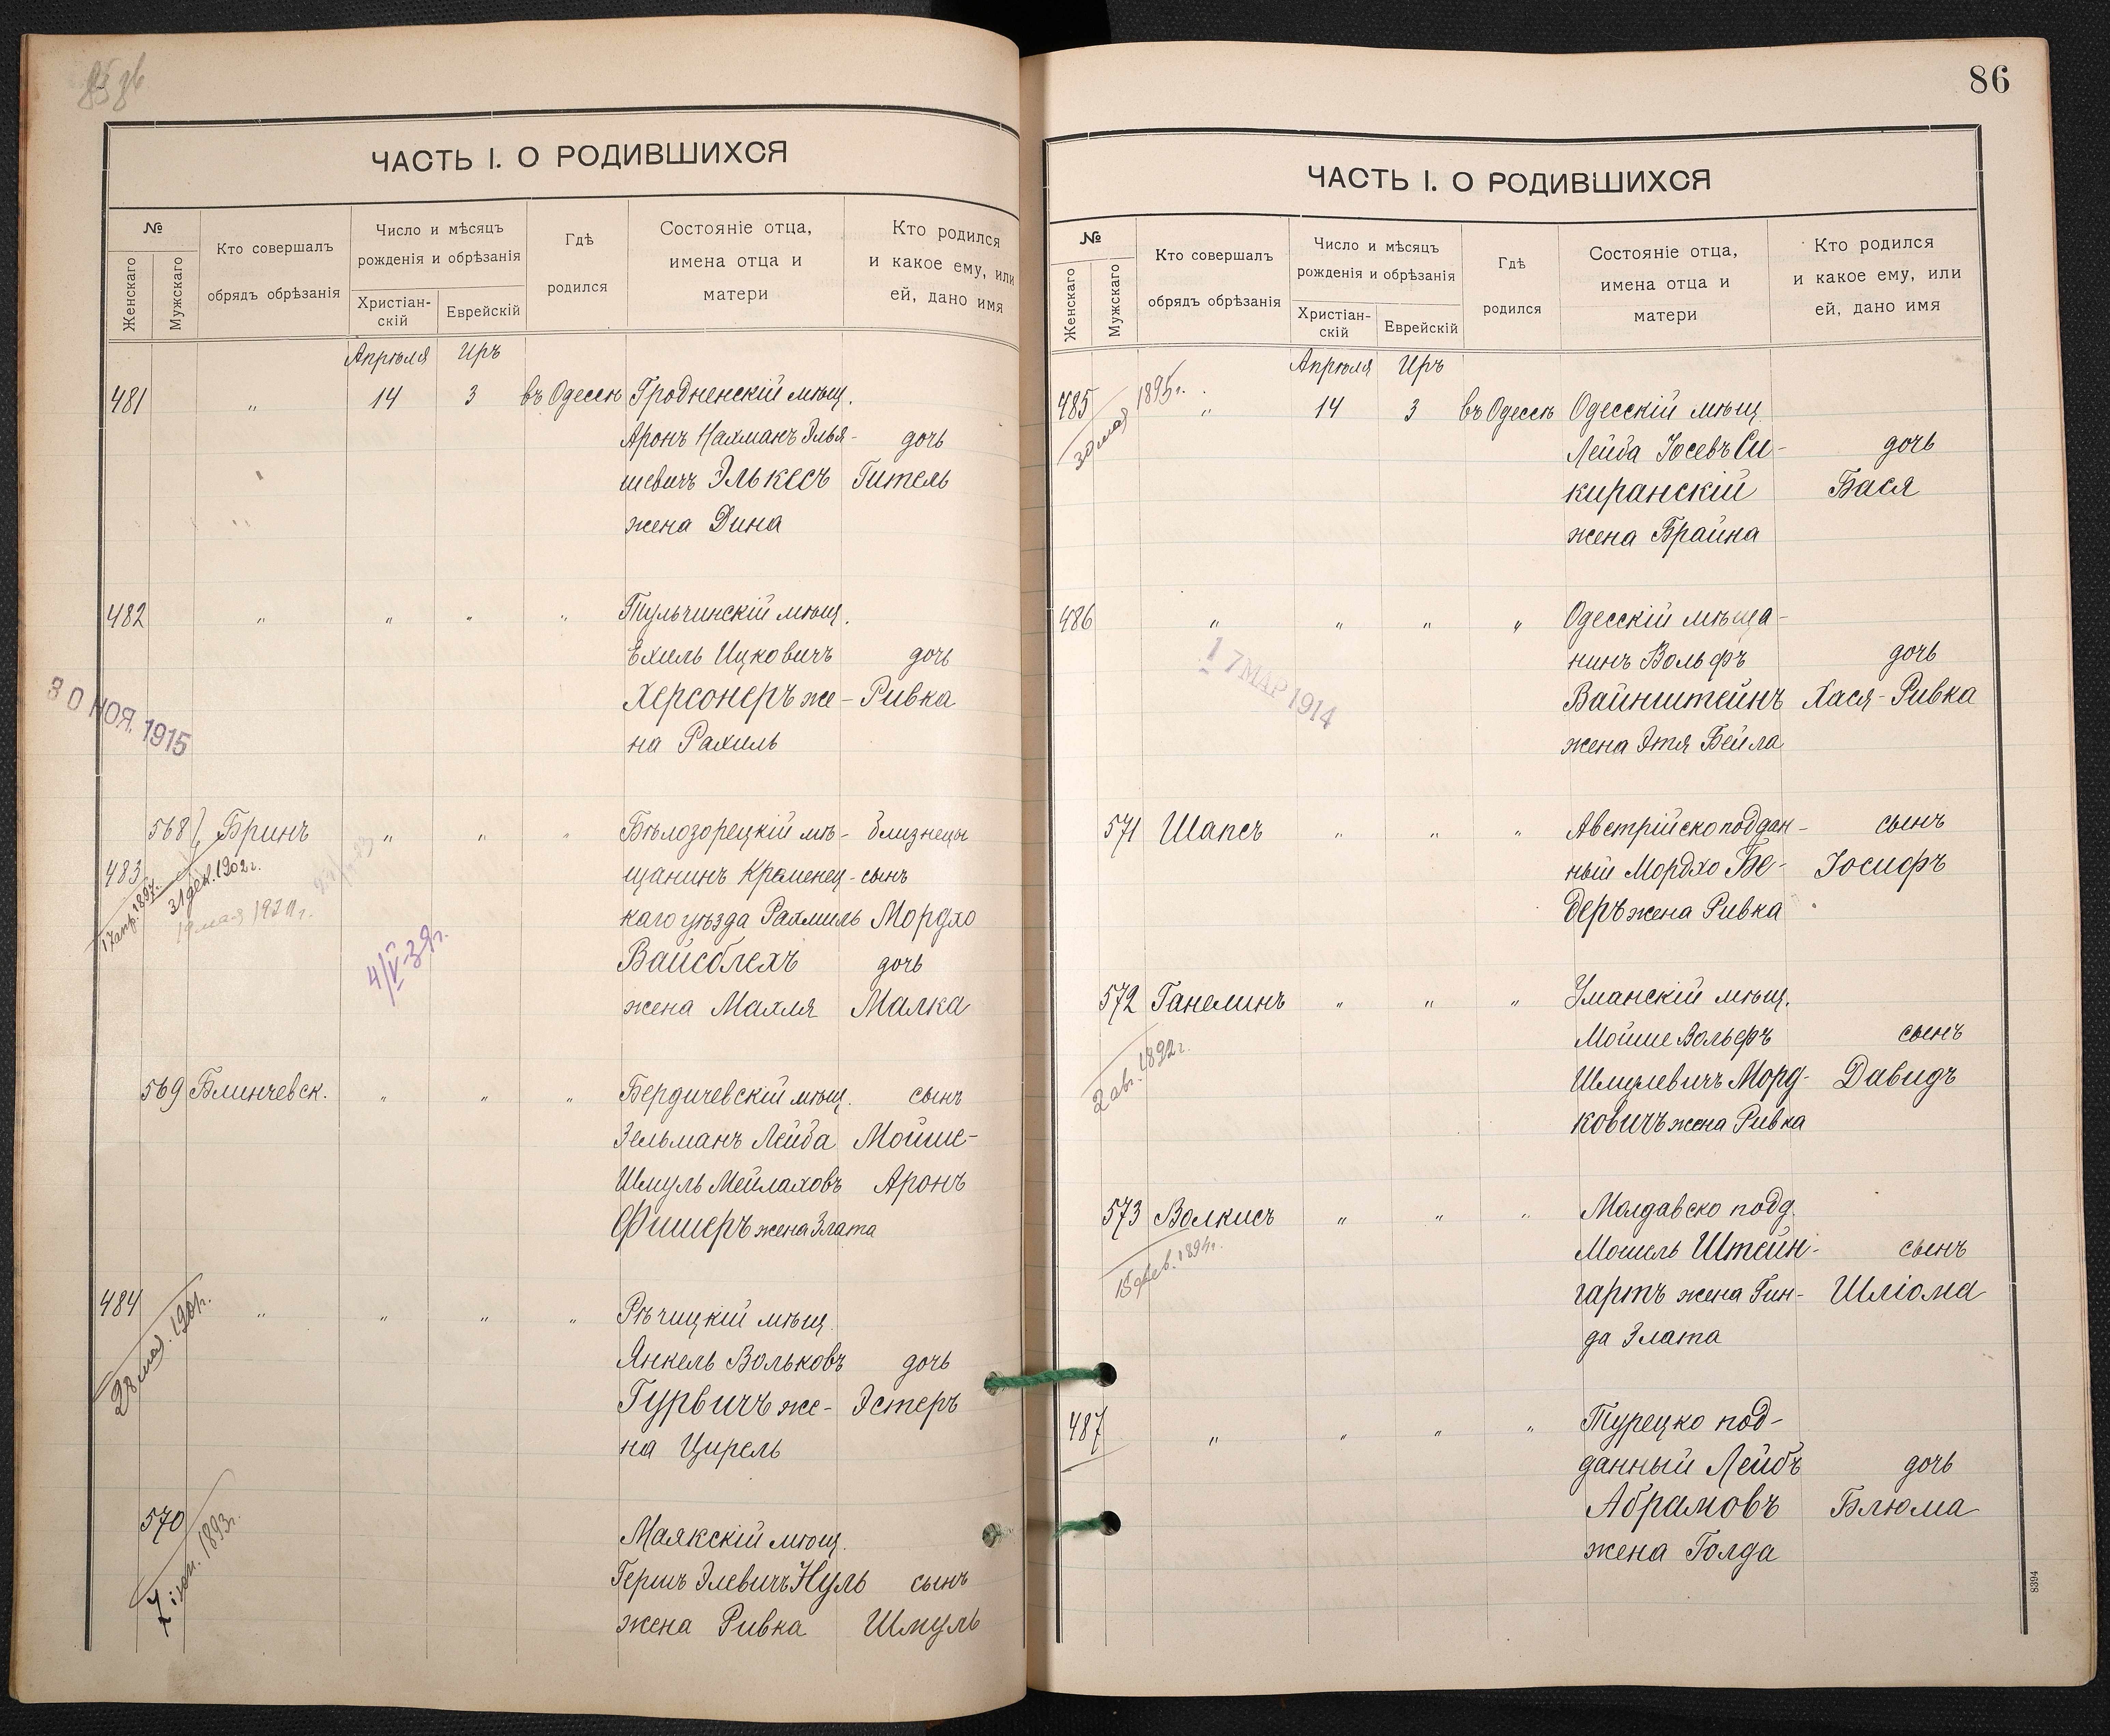 ЧАСТЬ I. О РОДИВШИХСЯ
№
Женскаго
Мужскаго
Кто совершалъ
обрядъ обрѣзанія
Число и мѣсяцъ
рожденія и обрѣзанія
Христіан-
скій
Еврейскій
Гдѣ
родился
Состояніе отца,
имена отца и
матери
Кто родился
и какое ему, или
ей, дано имя
Апрѣля Иръ
481 " 14 3 въ Одессѣ Гродненскій мѣщ.
Аронъ Нахманъ Элья- дочь
шевичъ Элькесъ Гитель
жена Дина
482 " " " " Тульчинскій мѣщ.
Ехиль Ицковичъ дочь
Херсонеръ же- Ривка
на Рахиль
30 НОЯ. 1915
568 Бринъ " " " Бѣлозорецкій мѣ- близнецы
483 щанинъ Кременец- сынъ
17 апр. 1897г.
31 дек. 1902г.
19 мая 192 г.
каго уѣзда Рахмиль Мордхо
Вайсблехъ дочь
4/V-39г.
жена Махля Малка
569 Блинчевск. " " " Бердичевскій мѣщ. сынъ
Зельманъ Лейба Мойше-
Шмуль Мейлаховъ Аронъ
Фишеръ жена Злата
484 " " " " Рѣчицкій мѣщ.
28 мая. 1901г.
Янкель Вольковъ дочь
Гурвичъ же- Эстеръ
на Цирель
570 Маякскій мѣщ.
7 1893г.
Гершъ Элевичъ Нуль сынъ
жена Ривка Шмуль
86
ЧАСТЬ I. О РОДИВШИХСЯ
№
Женскаго
Мужскаго
Кто совершалъ
обрядъ обрѣзанія
Число и мѣсяцъ
рожденія и обрѣзанія
Христіан-
скій
Еврейскій
Гдѣ
родился
Состояніе отца,
имена отца и
матери
Кто родился
и какое ему, или
ей, дано имя
Апрѣля Иръ
485 " 14 3 въ Одессѣ Одесскій мѣщ
30 мая 1895г.
Лейба Іосевъ Си- дочь
киранскій Бася
жена Брайна
486 " " " " Одесскій мѣща-
нинъ Вольфъ дочь
17 МАР 1914
Вайнштейнъ Хася-Ривка
жена Этя Бейла
571 Шапсъ " " " Австрійско поддан- сынъ
ный Мордхо Бе- Іосифъ
деръ жена Ривка
572 Ганелинъ " " " Уманскій мѣщ.
2 авг. 1892г.
Мойше Вольфъ сынъ
Шмулевичъ Морд- Давидъ
ковичъ жена Ривка
573 Волкисъ " " " Молдавско подд.
15 фев. 1894г.
Мошель Штейн- сынъ
гартъ жена Гин- Шліома
да Злата
487 " " " " Турецко под-
данный Лейбъ дочь
Абрамовъ Блюма
жена Голда
8394